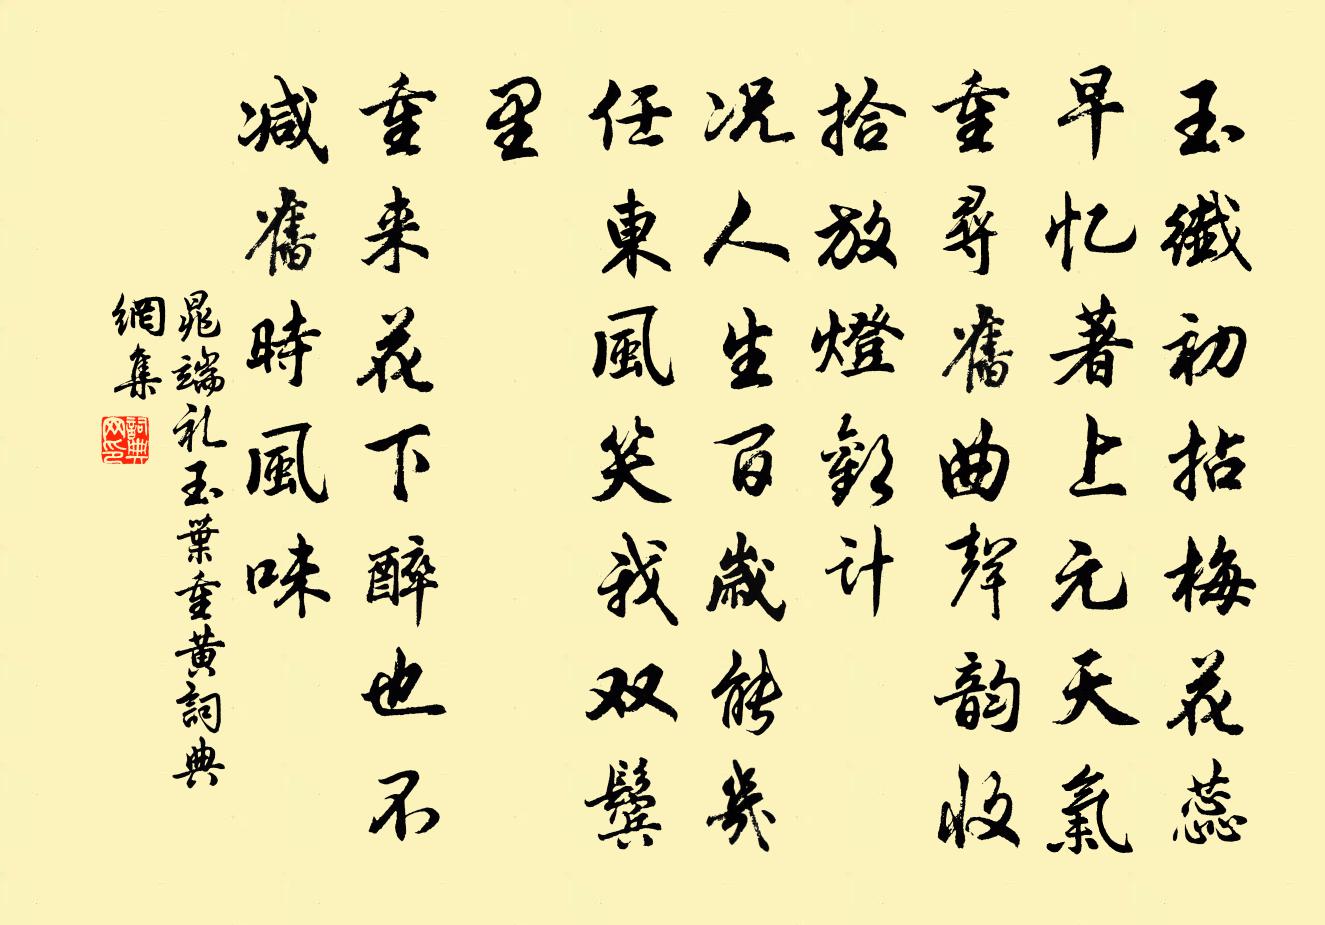 玉纖初拈梅花蕊
早忆著上元天氣
重尋舊曲聲韵收
拾放燈歡计
况人生百歲能幾
任東風笑我双鬓
里
重来花下醉也不
减舊時風味
晁端礼玉葉重黄詞典
網集
詞典网印